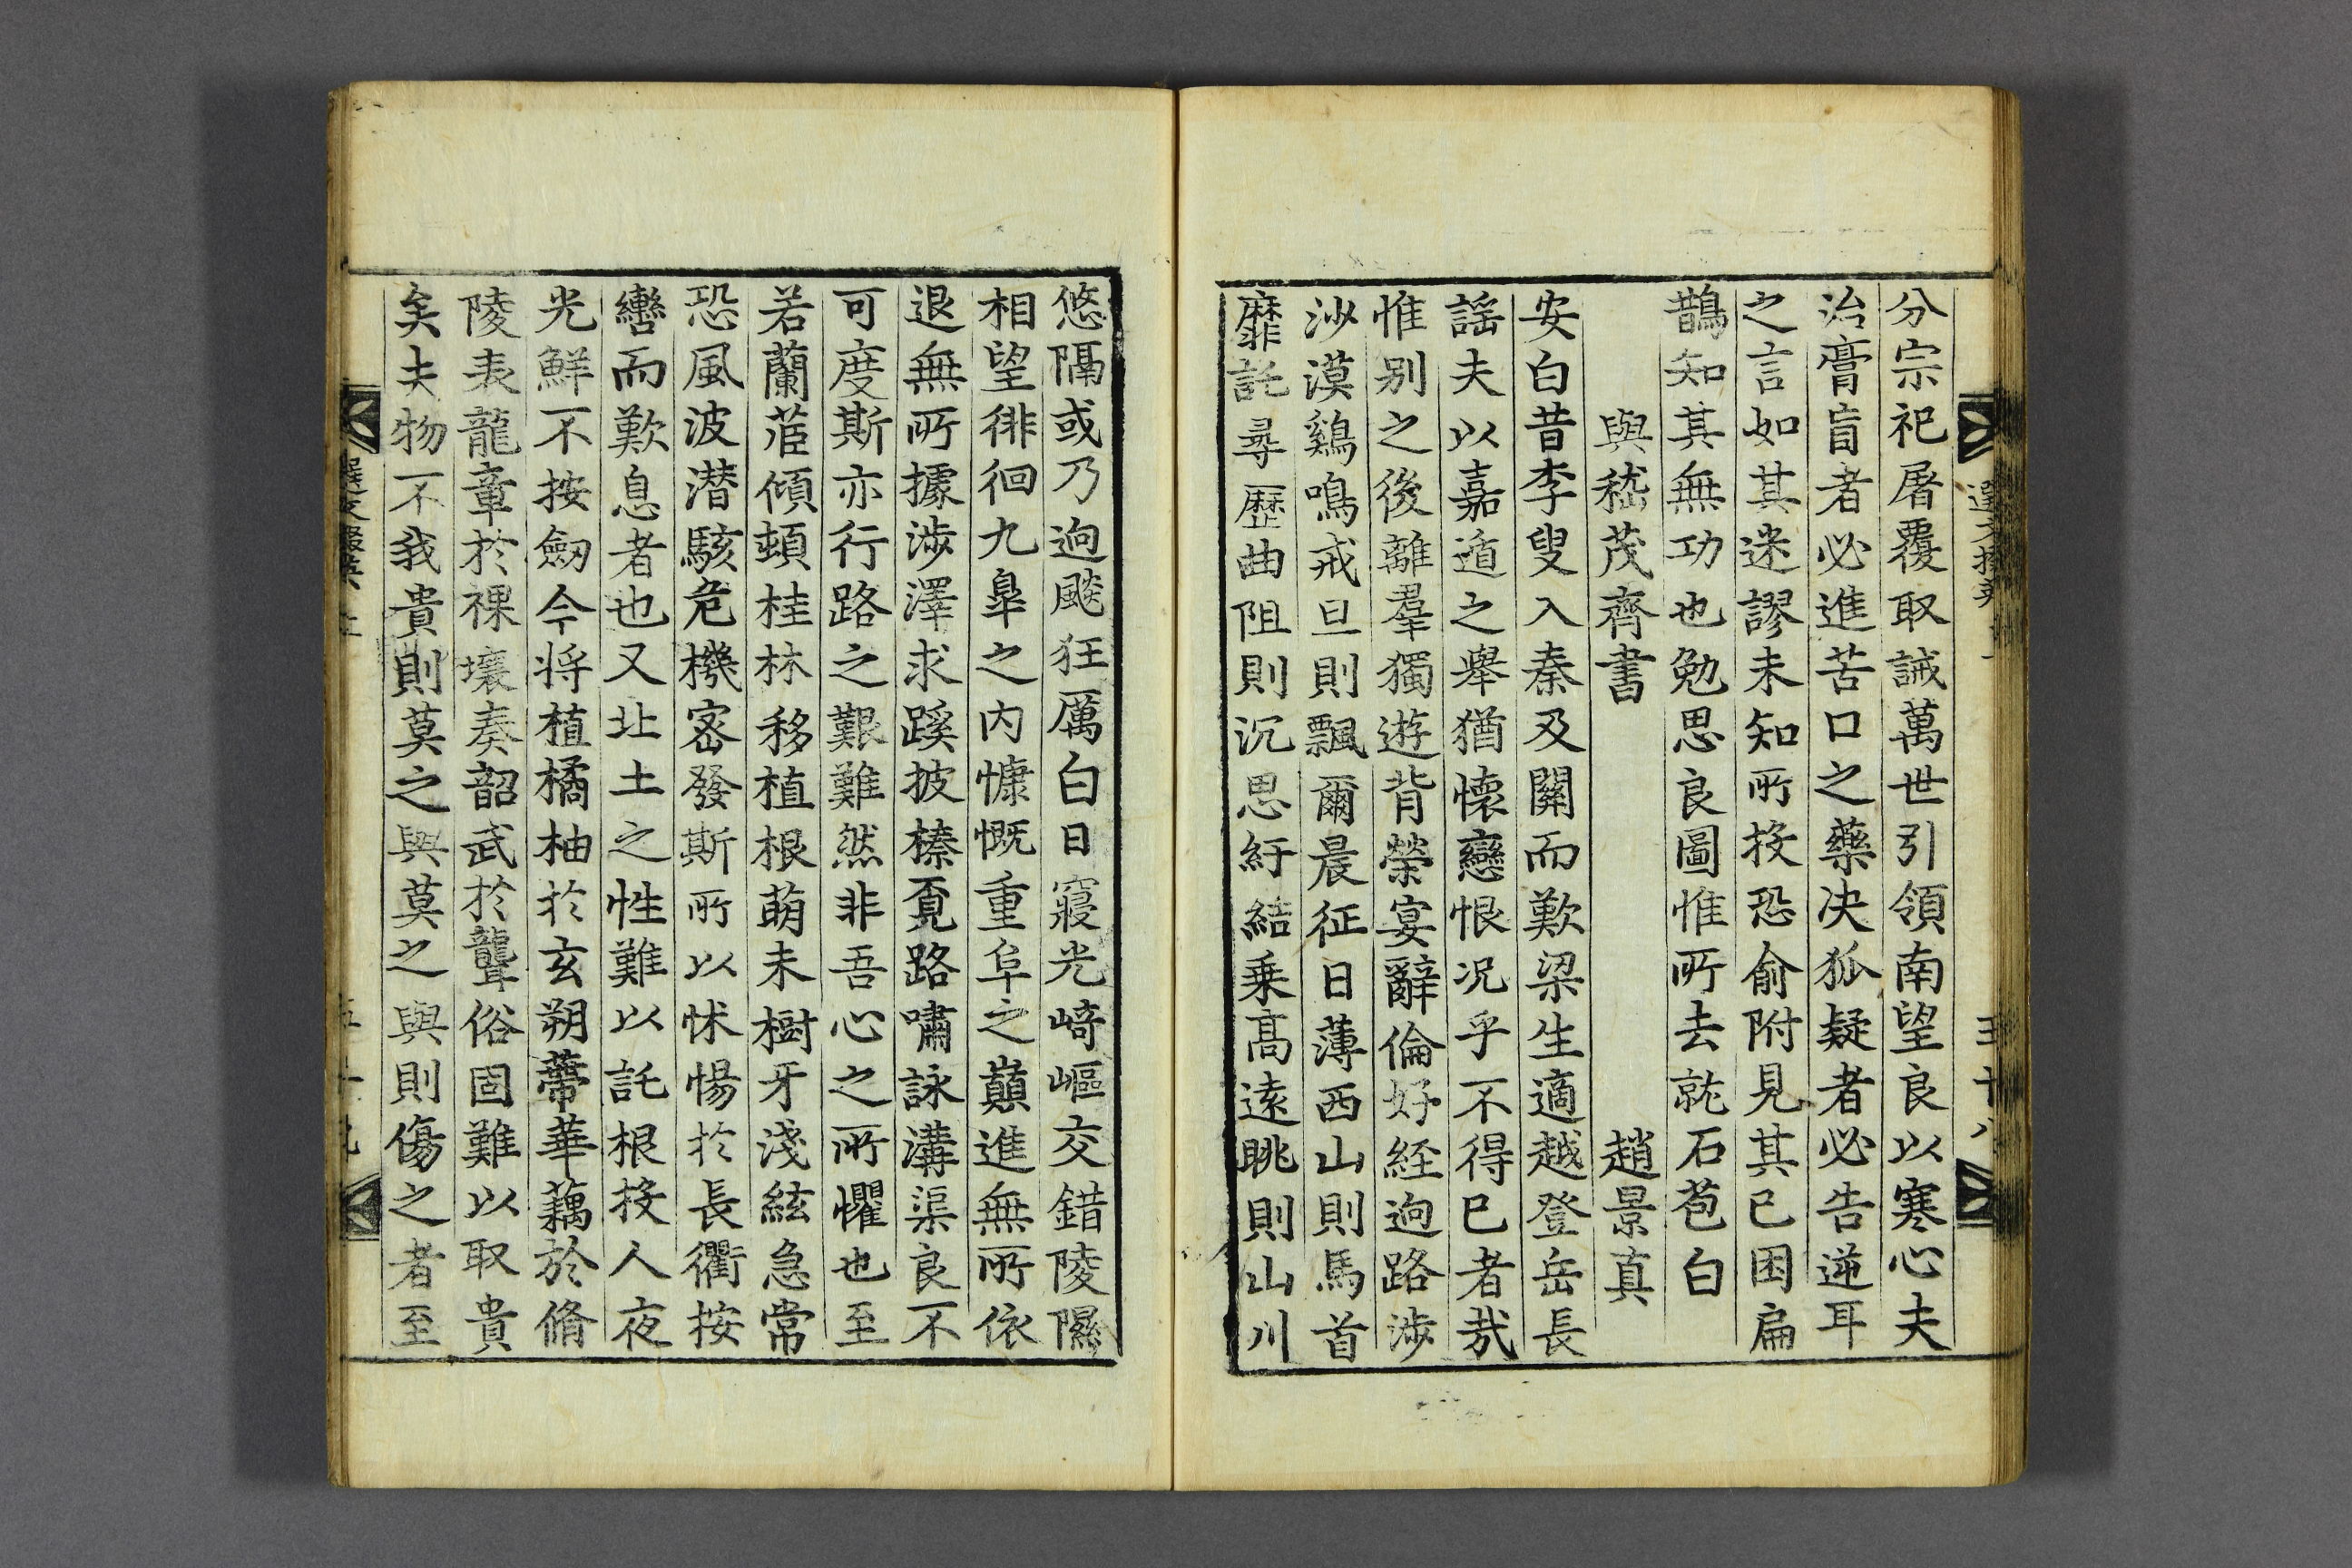 分宗祀屠覆取誡萬世引領南望良以寒心夫
治膏肓者必進苦口之藥决狐疑者必告逆耳
之言如其迷謬未知所投恐俞附見其已困扁
鵲知其無功也勉思良圖惟所去就石苞白
與嵇茂齊書 趙景真
安白昔李叟入秦及關而歎梁生適越登岳長
謡夫以嘉遁之舉猶懷戀恨况乎不得已者哉
惟别之後離羣獨遊背榮宴辭倫好経逈路涉
沙漠鷄鳴戒旦則飄爾晨征日薄西山則馬首
靡託尋歷曲阻則沉思紆結乗高遠眺則山川
悠隔或乃逈飈狂厲白日寢光崎嶇交錯陵隰
相望徘徊九臯之内慷慨重阜之巔進無所依
退無所據涉澤求蹊披榛覓路嘯詠溝渠良不
可度斯亦行路之艱難然非吾心之所懼也至
若蘭茝傾頓桂林移植根萌未樹牙淺絃急常
恐風波潜駭危機密發斯所以怵惕於長衢按
轡而歎息者也又北土之性難以託根投人夜
光鮮不按劒今将植橘柚於玄朔蔕華藕於脩
陵表龍章於裸壤奏韶武於聾俗固難以取貴
矣夫物不我貴則莫之與莫之與則傷之者至